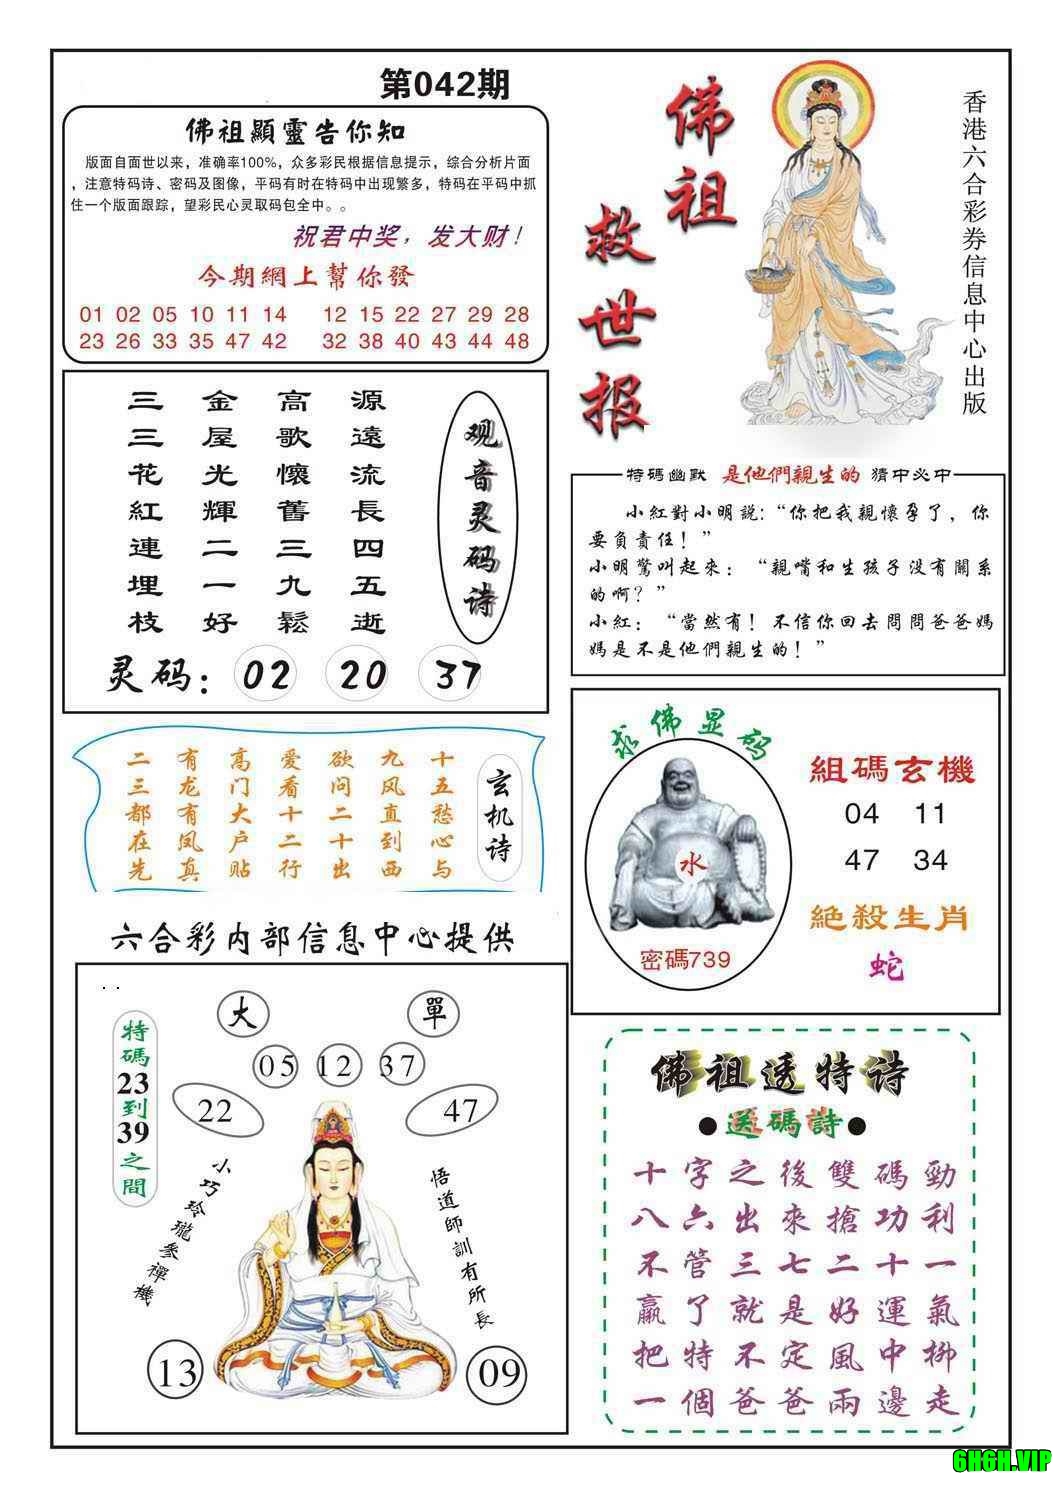 第042期
佛祖顯靈告你知
版面自面世以来，准确率100%，众多彩民根据信息提示，综合分析片面
，注意特码诗、密码及图像，平码有时在特码中出现繁多，特码在平码中抓
住一个版面跟踪，望彩民心灵取码包全中。。
祝君中奖，发大财！
今期網上幫你發
01 02 05 10 11 14 12 15 22 27 29 28
23 26 33 35 47 42 32 38 40 43 44 48
佛祖
救世报
香港六合彩券信息中心出版
观音灵码诗
源遠流長四五逝
高歌懷舊三九鬆
金屋光輝二一好
三三花紅連埋枝
灵码：02 20 37
特碼幽默 是他們親生的 猜中必中
小紅對小明説：“你把我親懷孕了，你
要負責任！”
小明驚叫起來：“親嘴和生孩子没有關系
的啊？”
小紅：“當然有！不信你回去問問爸爸媽
媽是不是他們親生的！”
玄机诗
十五愁心与
九风直到西
欲问二十出
爱看十二行
高门大户贴
有龙有凤真
二三都在先
求佛显码
水
密碼739
組碼玄機
04 11
47 34
絶殺生肖
蛇
六合彩内部信息中心提供
大 單
05 12 37
22 47
特碼23到39之間
小巧玲瓏參禪機
悟道師訓有所長
13 09
佛祖透特诗
●送碼詩●
十字之後雙碼勁
八六出來搶功利
不管三七二十一
赢了就是好運氣
把特不定風中柳
一個爸爸兩邊走
6H6H.VIP